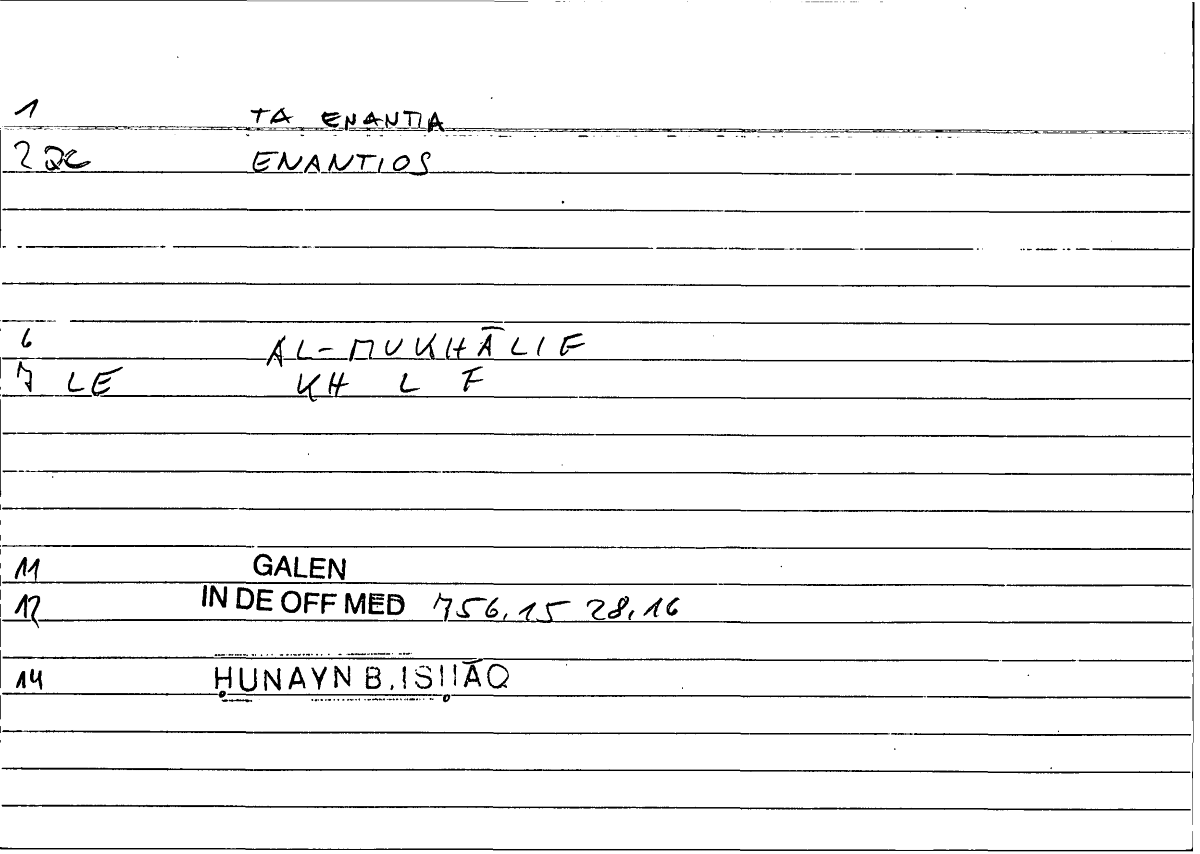 1 TA ENANTIA
2 QC ENANTIOS
6 AL-MUKHĀLIF
7 LE KH L F
11 GALEN
12 IN DE OFF MED 756,15 28,16
14 ḤUNAYN B. ISḤĀQ